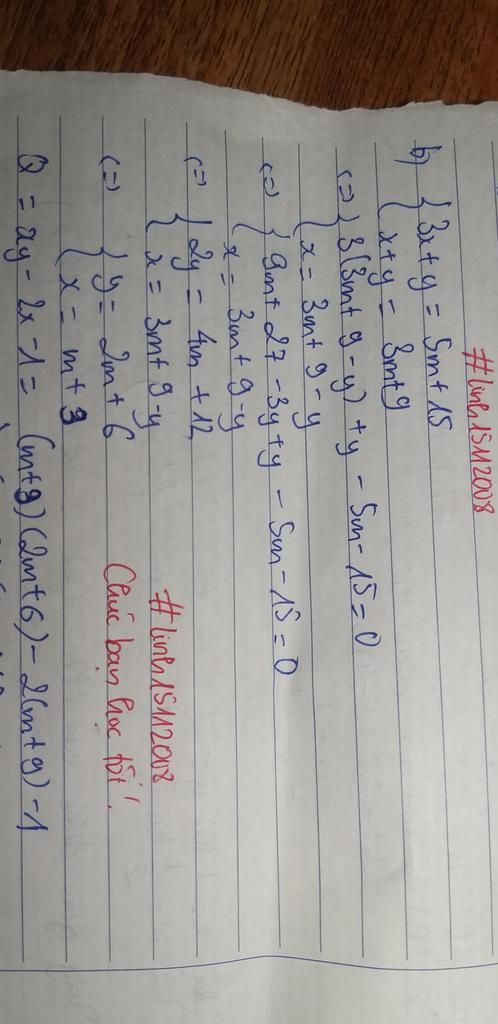 #linh15112008
b) { 3x+y = 5m+15
{ x+y = 3m+9
(=) { 3(3m+9-y) + y - 5m - 15 = 0
{ x = 3m+9-y
(=) { 9m+27-3y+y - 5m - 15 = 0
{ x = 3m+9-y
(=) { 2y = 4m+12
{ x = 3m+9-y
#linh15112008
(=) { y = 2m+6
Chúc bạn học tốt!
{ x = m+9
Q = xy - 2x - 1 = (m+9)(2m+6) - 2(m+9) - 1